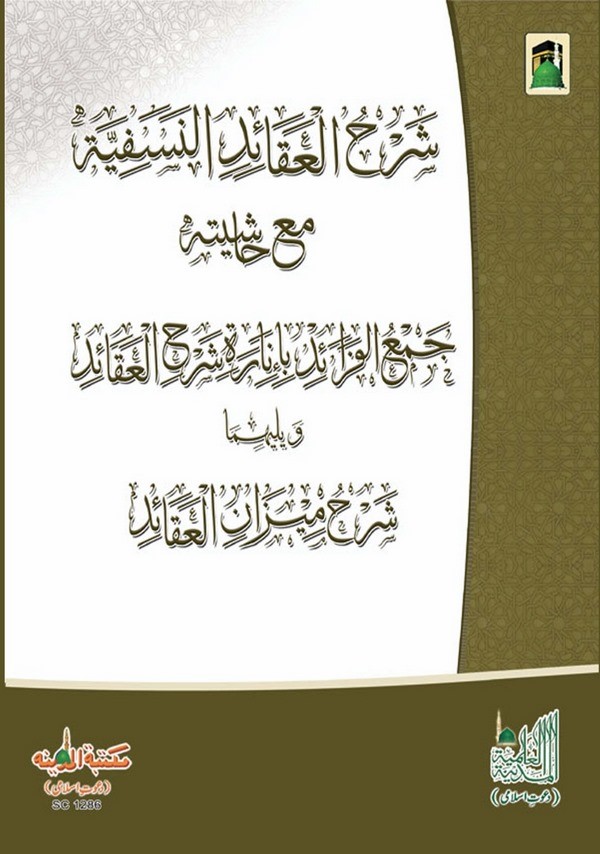 شَرْحُ الْعَقَائِدِ النَّسَفِيَّةِ
مع حاشیته
جَمْعُ الْفَرَائِدِ بِإِنَارَةِ شَرْحِ الْعَقَائِدِ
وَيَلِيهِمَا
شَرْحُ مِيْزَانِ الْعَقَائِدِ
مکتبة المدینه
(دعوتِ اسلامی)
SC 1286
المدينة العلمية
(دعوتِ اسلامی)